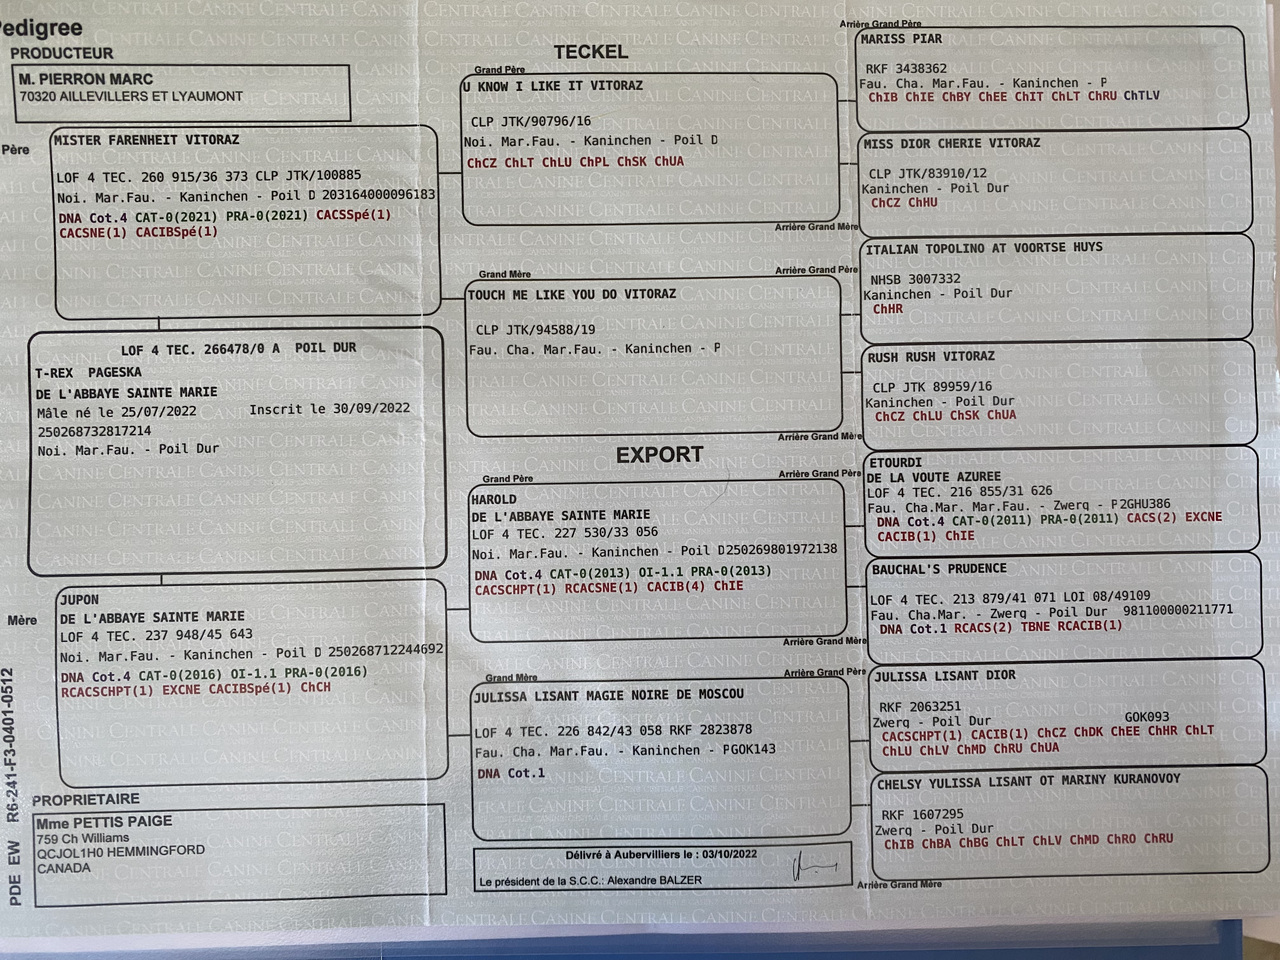 Pedigree
PRODUCTEUR
M. PIERRON MARC
70320 AILLEVILLERS ET LYAUMONT
Père
MISTER FARENHEIT VITORAZ
LOF 4 TEC. 260 915/36 373 CLP JTK/100885
Noi. Mar.Fau. - Kaninchen - Poil D 203164000096183
DNA Cot.4 CAT-0(2021) PRA-0(2021) CACSSpé(1)
CACSNE(1) CACIBSpé(1)
LOF 4 TEC. 266478/0 A POIL DUR
T-REX PAGESKA
DE L'ABBAYE SAINTE MARIE
Mâle né le 25/07/2022 Inscrit le 30/09/2022
250268732817214
Noi. Mar.Fau. - Poil Dur
Mère
JUPON
DE L'ABBAYE SAINTE MARIE
LOF 4 TEC. 237 948/45 643
Noi. Mar.Fau. - Kaninchen - Poil D 250268712244692
DNA Cot.4 CAT-0(2016) OI-1.1 PRA-0(2016)
RCACSCHPT(1) EXCNE CACIBSpé(1) ChCH
PROPRIETAIRE
Mme PETTIS PAIGE
759 Ch Williams
QCJOL1H0 HEMMINGFORD
CANADA
PDE EW R6-241-F3-0401-0512
TECKEL
Grand Père
U KNOW I LIKE IT VITORAZ
CLP JTK/90796/16
Noi. Mar.Fau. - Kaninchen - Poil D
ChCZ ChLT ChLU ChPL ChSK ChUA
Grand Mère
TOUCH ME LIKE YOU DO VITORAZ
CLP JTK/94588/19
Fau. Cha. Mar.Fau. - Kaninchen - P
EXPORT
Grand Père
HAROLD
DE L'ABBAYE SAINTE MARIE
LOF 4 TEC. 227 530/33 056
Noi. Mar.Fau. - Kaninchen - Poil D250269801972138
DNA Cot.4 CAT-0(2013) OI-1.1 PRA-0(2013)
CACSCHPT(1) RCACSNE(1) CACIB(4) ChIE
Grand Mère
JULISSA LISANT MAGIE NOIRE DE MOSCOU
LOF 4 TEC. 226 842/43 058 RKF 2823878
Fau. Cha. Mar.Fau. - Kaninchen - PGOK143
DNA Cot.1
Délivré à Aubervilliers le : 03/10/2022
Le président de la S.C.C.: Alexandre BALZER
Arrière Grand Père
MARISS PIAR
RKF 3438362
Fau. Cha. Mar.Fau. - Kaninchen - P
ChIB ChIE ChBY ChEE ChIT ChLT ChRU ChTLV
MISS DIOR CHERIE VITORAZ
CLP JTK/83910/12
Kaninchen - Poil Dur
ChCZ ChHU
Arrière Grand Mère
ITALIAN TOPOLINO AT VOORTSE HUYS
Arrière Grand Père
NHSB 3007332
Kaninchen - Poil Dur
ChHR
RUSH RUSH VITORAZ
CLP JTK 89959/16
Kaninchen - Poil Dur
ChCZ ChLU ChSK ChUA
Arrière Grand Mère
ETOURDI
DE LA VOUTE AZUREE
Arrière Grand Père
LOF 4 TEC. 216 855/31 626
Fau. Cha.Mar. Fau. - Zwerq - P2GHU386
DNA Cot.4 CAT-0(2011) PRA-0(2011) CACS(2) EXCNE
CACIB(1) ChIE
BAUCHAL'S PRUDENCE
LOF 4 TEC. 213 879/41 071 LOI 08/49109
Fau. Cha.Mar. - Zwerq - Poil Dur 981100000211771
DNA Cot.1 RCACS(2) TBNE RCACIB(1)
Arrière Grand Mère
Arrière Grand Père
JULISSA LISANT DIOR
RKF 2063251
Zwerq - Poil Dur GOK093
CACSCHPT(1) CACIB(1) ChCZ ChDK ChEE ChHR ChLT
ChLU ChLV ChMD ChRU ChUA
CHELSY YULISSA LISANT OT MARINY KURANOVOY
RKF 1607295
Zwerq - Poil Dur
ChIB ChBA ChBG ChLT ChLV ChMD ChRO ChRU
Arrière Grand Mère